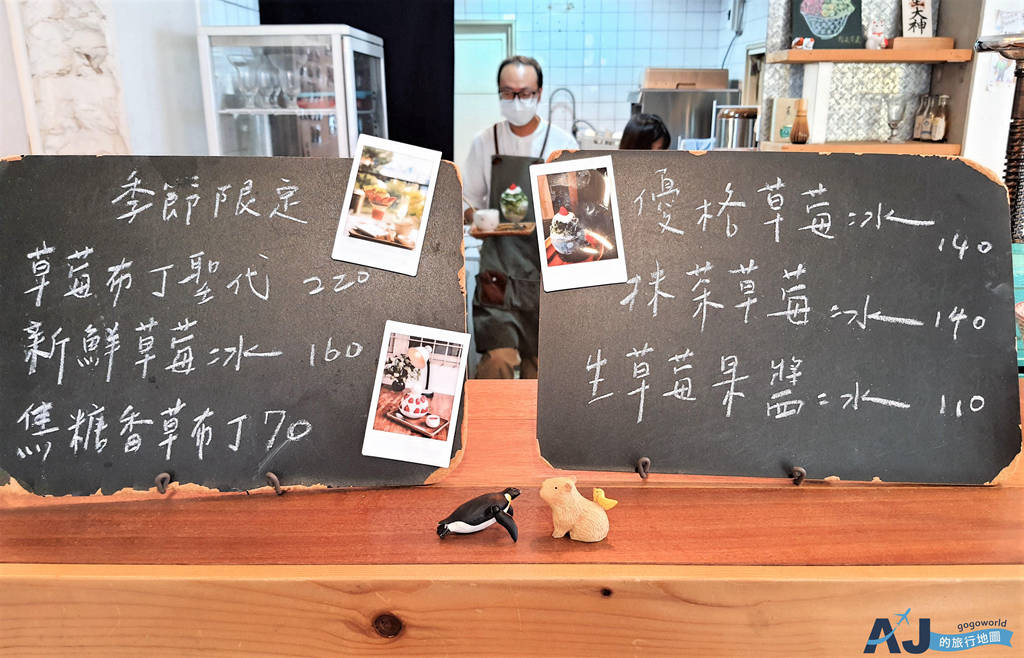 季節限定
草莓布丁聖代 220
新鮮草莓冰 160
焦糖香草布丁 70
優格草莓冰 140
抹茶草莓冰 140
生草莓果醬冰 110
大神
AJ
的旅行地圖
gogoworld